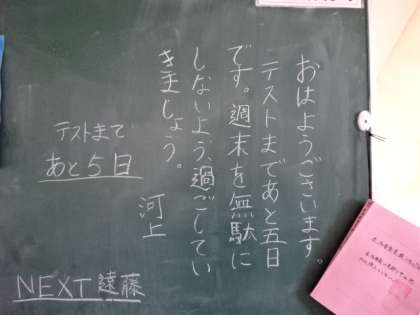 おはようございます。
テストまであと五日
です。週末を無駄に
しないよう、過ごしてい
きましょう。
河上
テストまで
あと5日
NEXT遠藤